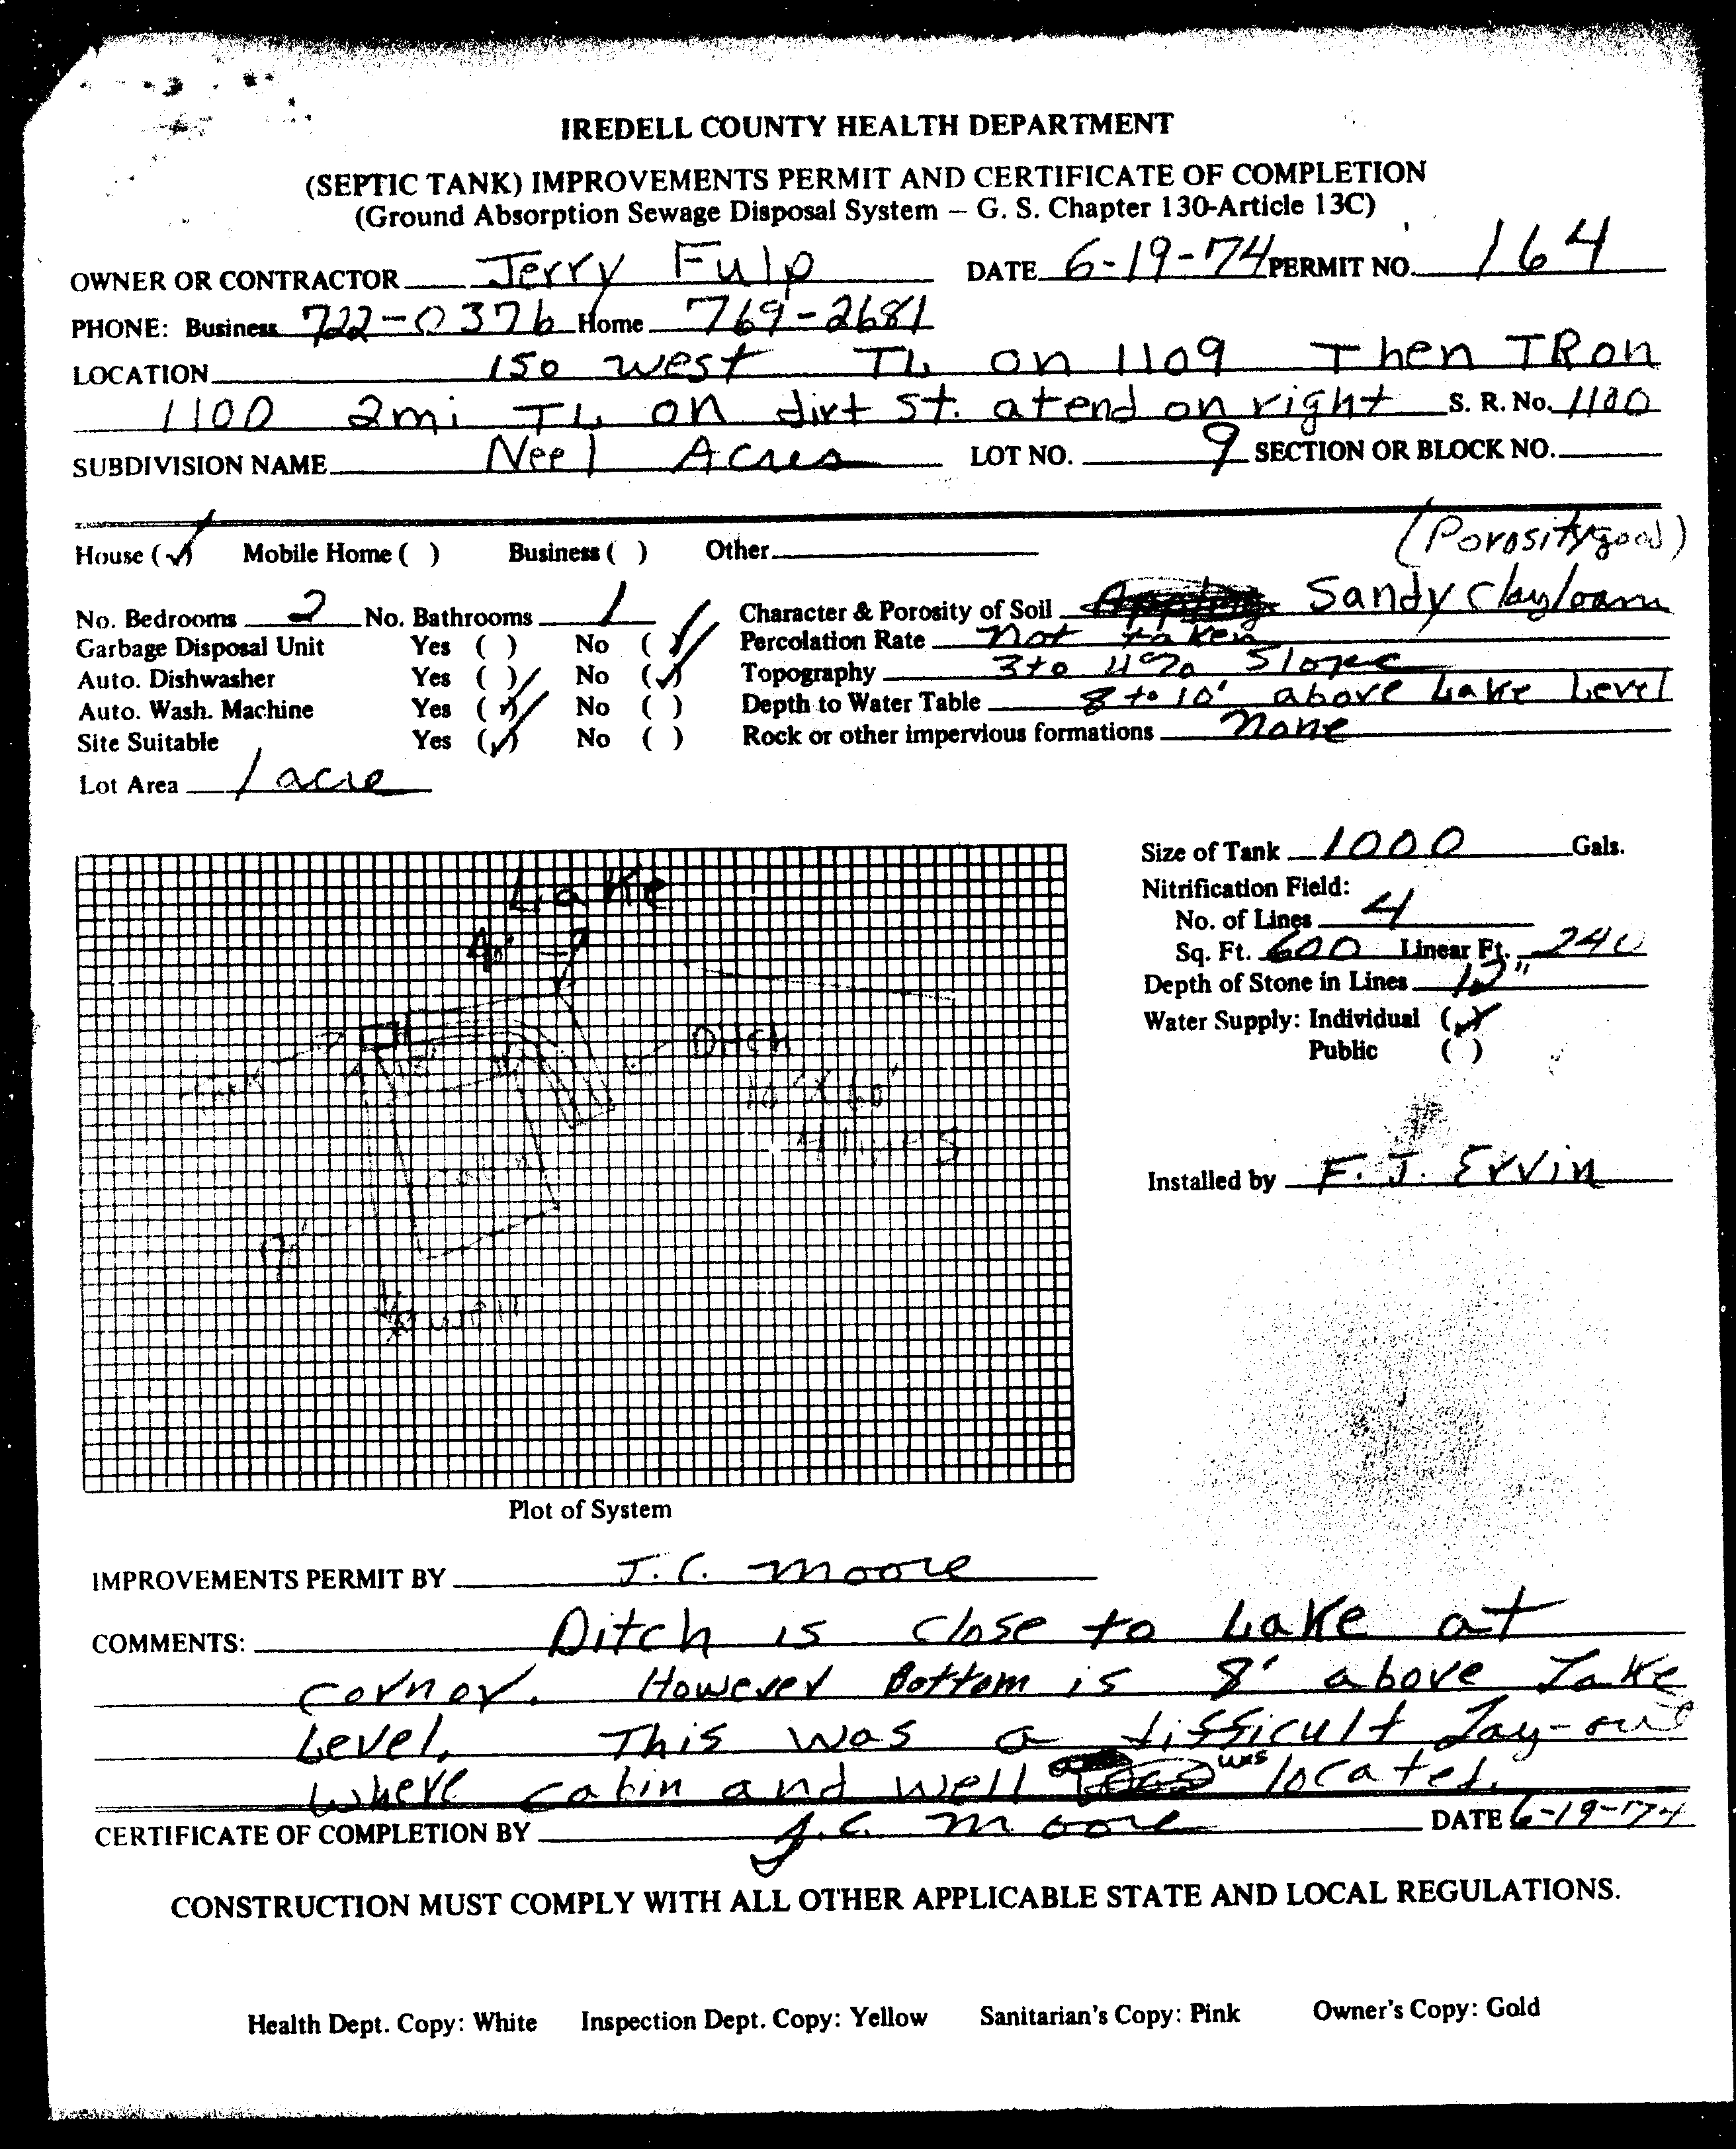 IREDELL COUNTY HEALTH DEPARTMENT
(SEPTIC TANK) IMPROVEMENTS PERMIT AND CERTIFICATE OF COMPLETION
(Ground Absorption Sewage Disposal System – G. S. Chapter 130-Article 13C)
OWNER OR CONTRACTOR Jerry Fulp DATE 6-19-74 PERMIT NO. 164
PHONE: Business 722-0376 Home 769-2681
LOCATION 150 West TL on 1109 Then TR on
1100 2mi TL on dirt St. at end on right S. R. No. 1100
SUBDIVISION NAME Neel Acres LOT NO. 9 SECTION OR BLOCK NO.
(Porosity good)
House (✓) Mobile Home ( ) Business ( ) Other
No. Bedrooms 2 No. Bathrooms 1 Character & Porosity of Soil Sandy Clay loam
Garbage Disposal Unit Yes ( ) No (✓) Percolation Rate not taken
Auto. Dishwasher Yes ( ) No (✓) Topography 3 to 4% Slope
Auto. Wash. Machine Yes (✓) No ( ) Depth to Water Table 8 to 10' above Lake Level
Site Suitable Yes (✓) No ( ) Rock or other impervious formations none
Lot Area 1 acre
Size of Tank 1000 Gals.
Nitrification Field:
No. of Lines 4
Sq. Ft. 600 Linear Ft. 240
Depth of Stone in Lines 12"
Water Supply: Individual (✓)
Public ( )
Lake
Ditch
4 lines
well
Installed by F. J. Ervin
Plot of System
IMPROVEMENTS PERMIT BY J. C. Moore
COMMENTS: Ditch is close to Lake at
corner. However Bottom is 8' above Lake
Level. This was a difficult Lay-out
where cabin and well was located.
CERTIFICATE OF COMPLETION BY J. C. Moore DATE 6-19-74
CONSTRUCTION MUST COMPLY WITH ALL OTHER APPLICABLE STATE AND LOCAL REGULATIONS.
Health Dept. Copy: White Inspection Dept. Copy: Yellow Sanitarian's Copy: Pink Owner's Copy: Gold